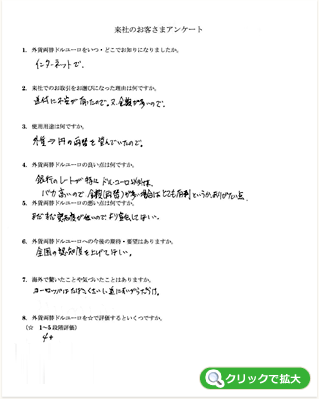 来社のお客さまアンケート
1. 外貨両替ドルユーロをいつ・どこでお知りになりましたか。
インターネットで。
2. 来社でのお取引をお選びになった理由は何ですか。
送付に不安が有ったので。又、金額が多いので。
3. 使用用途は何ですか。
外貨→円の両替を望んでいたので。
4. 外貨両替ドルユーロの良い点は何ですか。
銀行のレートが特に ドル・ユーロ以外は、
バカ高いので 金額(両替)が多い場合は とても有利というか、ありがたい点
5. 外貨両替ドルユーロの悪い点は何ですか。
まだまだ認知度が低いので より宣伝してほしい。
6. 外貨両替ドルユーロへの今後の期待・要望はありますか。
全国の認知度を上げてほしい。
7. 海外で驚いたことや気づいたことはありますか。
ヨーロッパはたばこくさいし、道にすいがらだらけ。
8. 外貨両替ドルユーロを☆で評価するといくつですか。
(☆ 1～5段階評価)
クリックで拡大